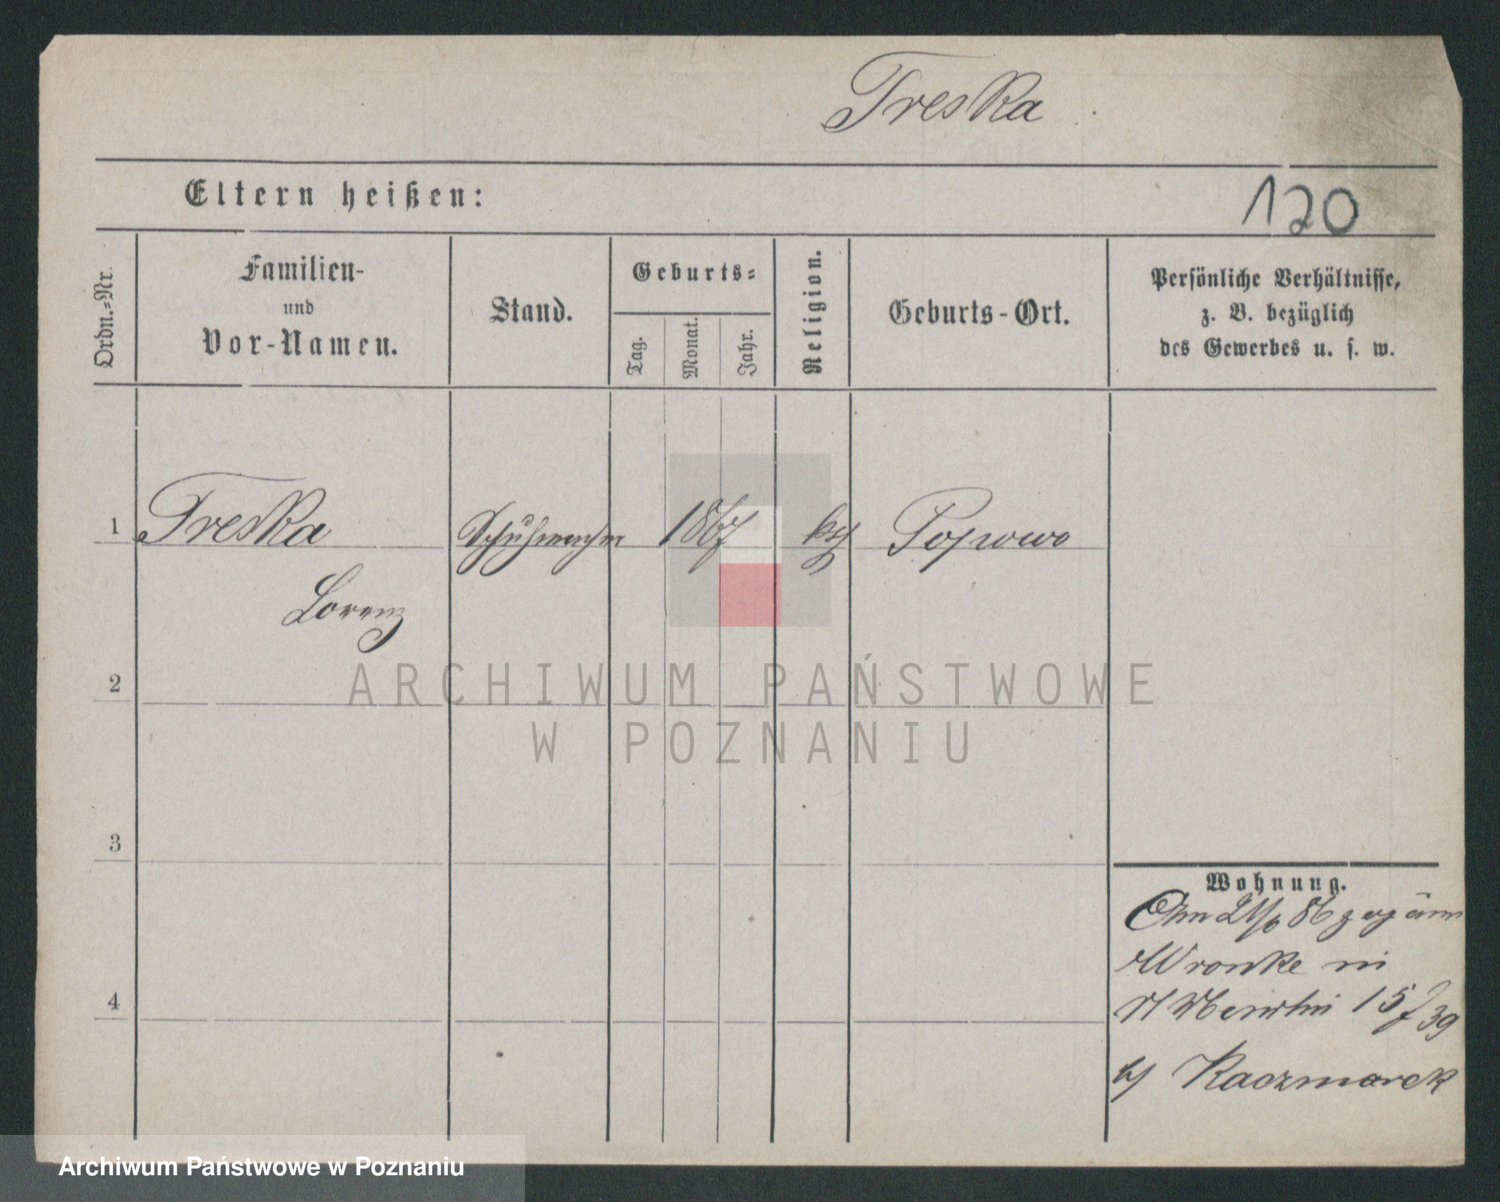 Treska
Eltern heißen:
120
Ordn.-Nr.
Familien-
und
Vor-Namen.
Stand.
Geburts-
Tag.
Monat.
Jahr.
Religion.
Geburts-Ort.
Persönliche Verhältnisse,
z. B. bezüglich
des Gewerbes u. s. w.
1 Treska Schuhmacher 1867 kth Popowo
Lorenz
2
3
4
Wohnung.
Wronke in
15/39
b/ Kaczmarek
ARCHIWUM PAŃSTWOWE
W POZNANIU
Archiwum Państwowe w Poznaniu